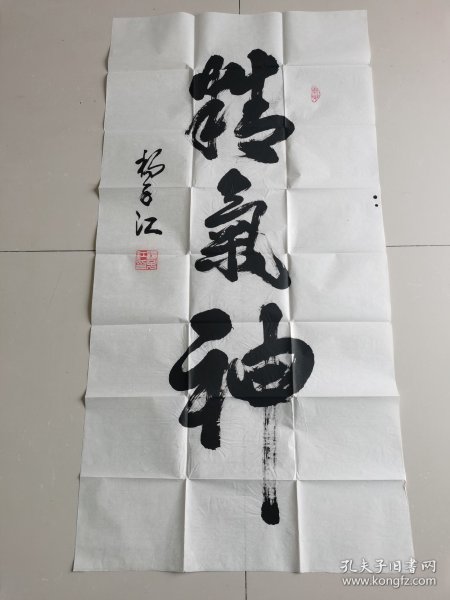 精氣神
杨子江
孔夫子旧书网
www.kongfz.com